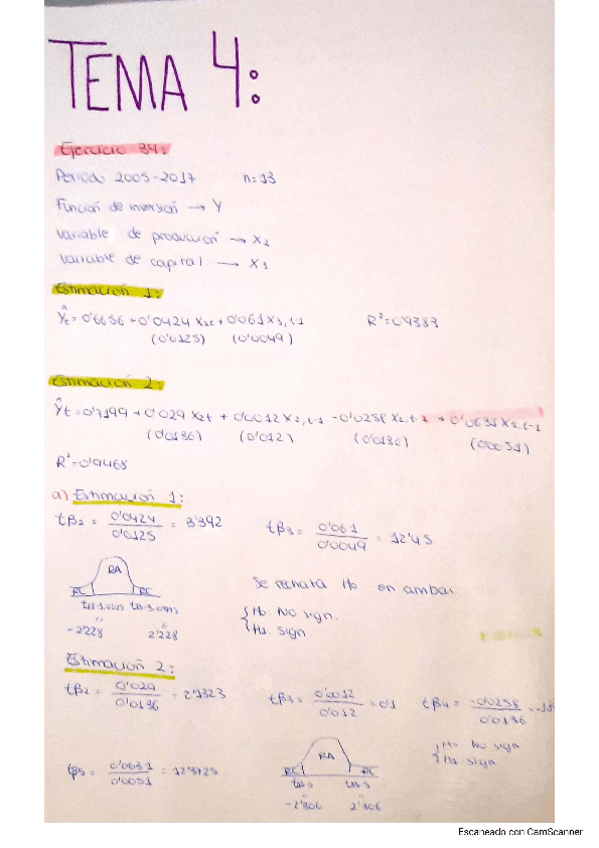 TEMA 4:
Ejercicio 34:
Periodo 2005-2017 n=13
Función de inversión → Y
variable de producción → X2
variable de capital → X3
Estimación 1:
Ŷt = 0'6656 + 0'0424 X2t + 0'061 X3,t-1 R² = 0'9383
(0'0125) (0'0049)
Estimación 2:
Ŷt = 0'7199 + 0'029 X2t + 0'0012 X2,t-1 - 0'0258 X2,t-2 + 0'0631 X3,t-1
(0'0136) (0'012) (0'0136) (0'0051)
R² = 0'9468
a) Estimación 1:
tβ2 = 0'0424 / 0'0125 = 3'392 tβ3 = 0'061 / 0'0049 = 12'45
RA
RC RC
Se rechaza Ho en ambas
-2'228 2'228
{ Ho: No sign.
Ha: sign
Estimación 2:
tβ2 = 0'029 / 0'0136 = 2'1323 tβ3 = 0'0012 / 0'012 = 0'1 tβ4 = -0'0258 / 0'0136
{ Ho: No sign
Ha: sign
tβ5 = 0'0631 / 0'0051 = 12'3725
RA
RC RC
-2'306 2'306
Escaneado con CamScanner